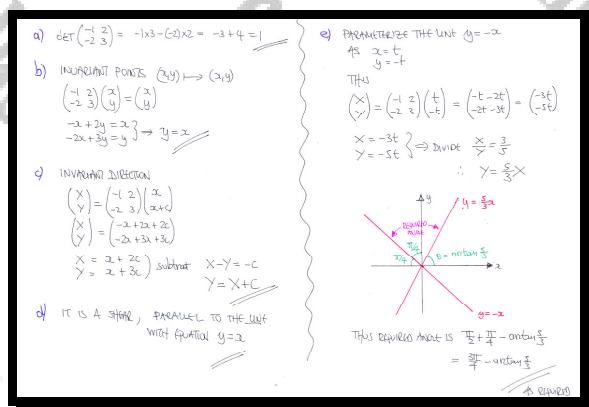 a) DET (-1 2 / -2 3) = -1×3-(-2)×2 = -3+4 = 1
b) INVARIANT POINTS (x,y) ⟼ (x,y)
(-1 2 / -2 3)(x / y) = (x / y)
-x+2y = x
-2x+3y = y } ⇒ y=x
c) INVARIANT DIRECTION
(X / Y) = (-1 2 / -2 3)(x / x+c)
(X / Y) = (-x+2x+2c / -2x+3x+3c)
X = x+2c
Y = x+3c ) subtract X-Y = -c
Y = X+C
d) IT IS A SHEAR, PARALLEL TO THE LINE
WITH EQUATION y=x
e) PARAMETERIZE THE LINE y=-x
AS x=t
y=-t
THUS
(X / Y) = (-1 2 / -2 3)(t / -t) = (-t-2t / -2t-3t) = (-3t / -5t)
X = -3t
Y = -5t } ⇒ DIVIDE X/Y = 3/5
∴ Y = 5/3 X
y
y = 5/3 x
REQUIRED
ANGLE
π/4
π/4
θ = arctan 5/3
x
y=-x
THUS REQUIRED ANGLE IS π/2 + π/4 - arctan 5/3
= 3π/4 - arctan 5/3
AS REQUIRED